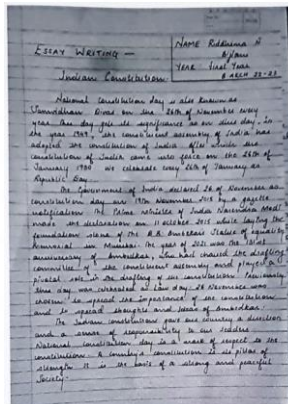 ESSAY WRITING —
NAME Riddhima N
Bijani
YEAR First Year
B ARCH 22-23
Indian Constitution
National Constitution day is also known as
Samvidhan Divas on the 26th of November every
year. The day gets its significance as on this day, in
the year 1949, the constituent assembly of India had
adopted the constitution of India after which the
constitution of India came into force on the 26th of
January 1950 we celebrate every 26th of January as
Republic Day.
The Government of India declared 26 of November as
constitution day on 19th November 2015 by a gazette
notification. The Prime Minister of India Narendra Modi
made the declaration on 11 october 2015 while laying the
foundation stone of the B.R. Ambedkar Statue of equality
memorial in Mumbai. The year of 2021 was the 131st
anniversary of Ambedkar, who had chaired the drafting
committee of the constituent assembly and played a
pivotal role in the drafting of the constitution. Previously
this day was celebrated as Law day. 26 November was
chosen to spread the importance of the constitution
and to spread thoughts and ideas of Ambedkar.
The Indian constitution gave our country a direction
and a sense of responsibility to our leaders
National constitution day is a mark of respect to the
constitution. A country's constitution is its pillar of
strength. It is the basis of a strong and peaceful
Society.